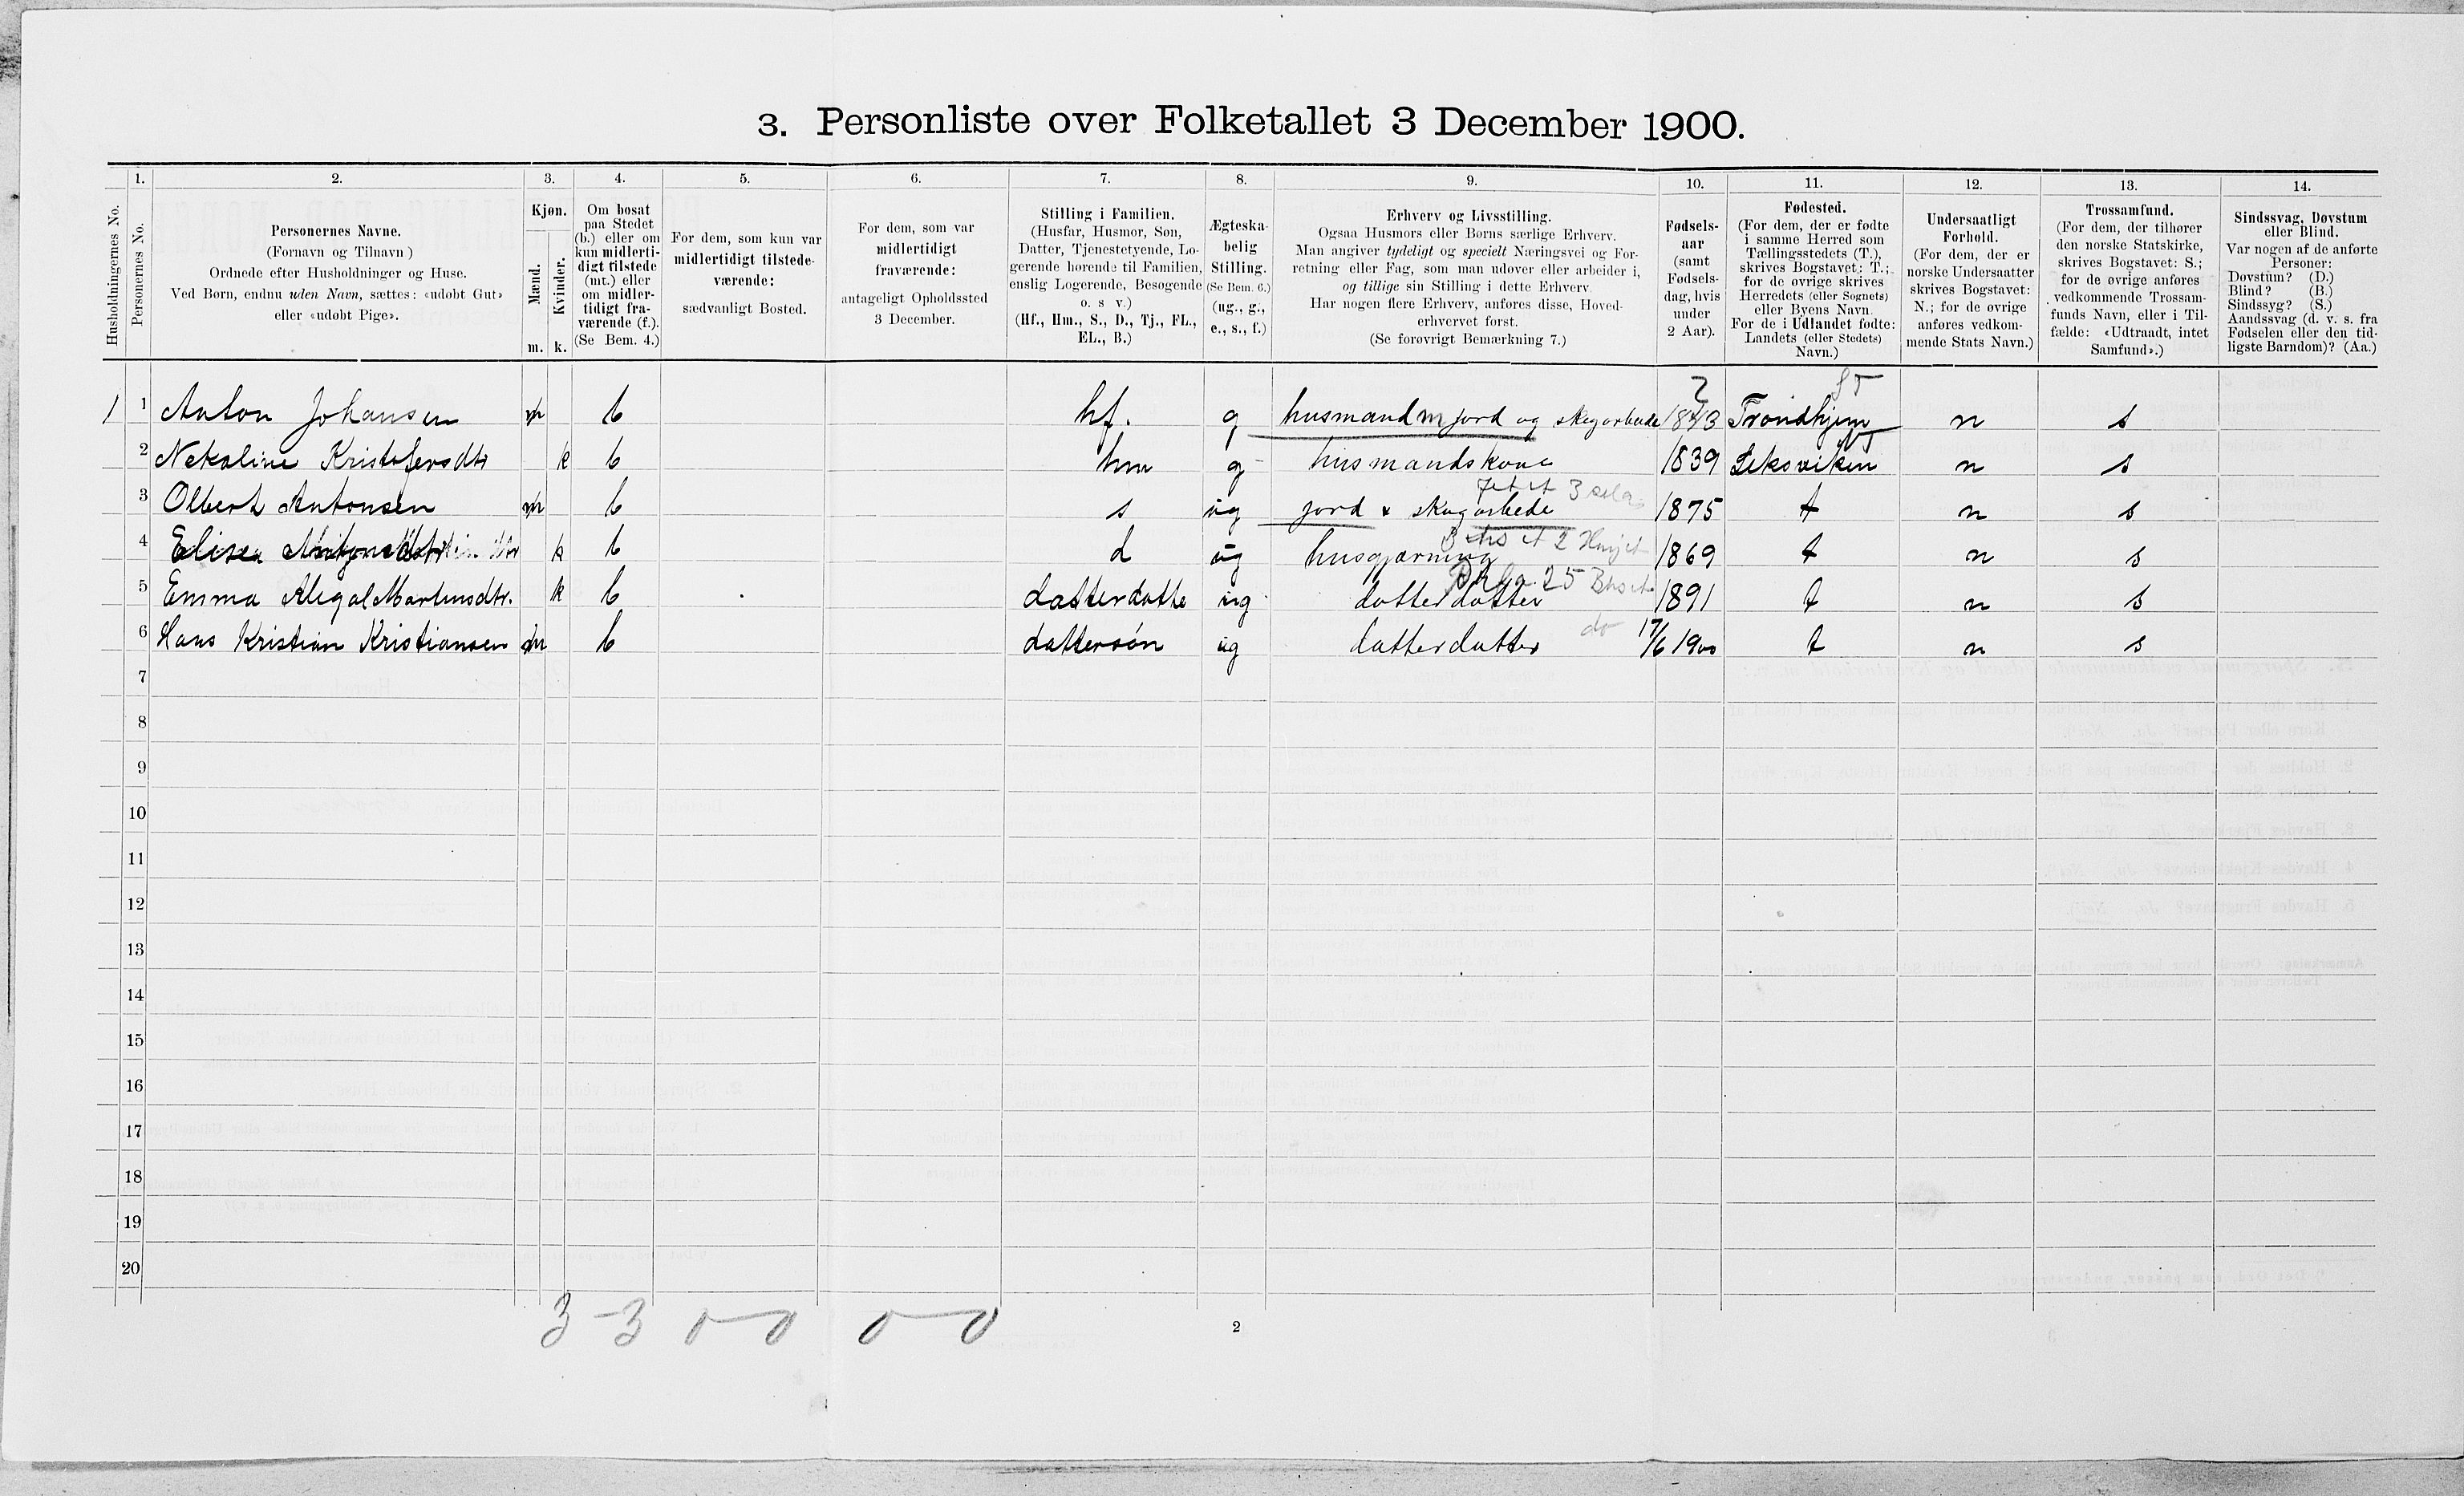 3. Personliste over Folketallet 3 December 1900.
1. 2. 3. 4. 5. 6. 7. 8. 9. 10. 11. 12. 13. 14.
Husholdningernes No.
Personernes No.
Personernes Navne.
(Fornavn og Tilnavn)
Ordnede efter Husholdninger og Huse.
Ved Børn, endnu uden Navn, sættes: «udøbt Gut»
eller «udøbt Pige».
Kjøn.
Mænd.
Kvinder.
m. k.
Om bosat
paa Stedet
(b.) eller om
kun midlerti-
digt tilstede
(mt.) eller
om midler-
tidigt fra-
værende (f.).
(Se Bem. 4.)
For dem, som kun var
midlertidigt tilstede-
værende:
sædvanligt Bosted.
For dem, som var
midlertidigt
fraværende:
antageligt Opholdssted
3 December.
Stilling i Familien.
(Husfar, Husmor, Søn,
Datter, Tjenestetyende, Lo-
gerende hørende til Familien,
enslig Logerende, Besøgende
o. s v.)
(Hf., Hm., S., D., Tj., FL.,
EL., B.)
Ægteska-
belig
Stilling.
(Se Bem. 6.)
(ug., g.,
e., s., f.)
Erhverv og Livsstilling.
Ogsaa Husmors eller Børns særlige Erhverv.
Man angiver tydeligt og specielt Næringsvei og For-
retning eller Fag, som man udøver eller arbeider i,
og tillige sin Stilling i dette Erhverv.
Har nogen flere Erhverv, anføres disse, Hoved-
erhvervet først.
(Se forøvrigt Bemærkning 7.)
Fødsels-
aar
(samt
Fødsels-
dag, hvis
under
2 Aar).
Fødested.
(For dem, der er fødte
i samme Herred som
Tællingsstedets (T.),
skrives Bogstavet: T.;
for de øvrige skrives
Herredets (eller Sognets)
eller Byens Navn.
For de i Udlandet fødte:
Landets (eller Stedets)
Navn.)
Undersaatligt
Forhold.
(For dem, der er
norske Undersaatter
skrives Bogstavet:
N.; for de øvrige
anføres vedkom-
mende Stats Navn.)
Trossamfund.
(For dem, der tilhører
den norske Statskirke,
skrives Bogstavet: S.;
for de øvrige anføres
vedkommende Trossam-
funds Navn, eller i Til-
fælde: «Udtraadt, intet
Samfund».)
Sindssvag, Døvstum
eller Blind.
Var nogen af de anførte
Personer:
Døvstum? (D.)
Blind? (B.)
Sindssyg? (S.)
Aandssvag (d. v. s. fra
Fødselen eller den tid-
ligste Barndom)? (Aa.)
1 1 Anton Johansen m b hf. g husmand m jord og skogarbeide 1843 Trondhjem n s
2 Nekoline Kristofersdtr k b hm g husmandskone 1839 Leksviken n s
3 Olbert Antonsen m b s ug jord & skogarbede 1875 t n s
4 Elisea k b d ug husgjærning 1869 t n s
5 Emma Martinsdtr. k b datterdatte ug datterdatter 1891 t n s
6 Hans Kristian Kristiansen m b dattersøn ug datterdatter do 17/6 1900 t n s
7
8
9
10
11
12
13
14
15
16
17
18
19
20
3 - 3 0 - 0 0 - 0
2